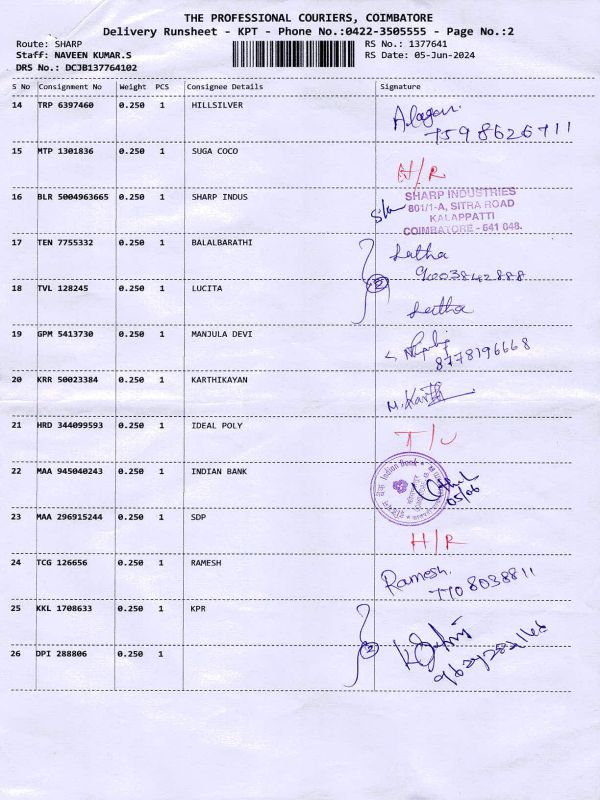 THE PROFESSIONAL COURIERS, COIMBATORE
Delivery Runsheet - KPT - Phone No.:0422-3505555 - Page No.:2
Route: SHARP RS No.: 1377641
Staff: NAVEEN KUMAR.S RS Date: 05-Jun-2024
DRS No.: DCJB137764102
S No Consignment No Weight PCS Consignee Details Signature
14 TRP 6397460 0.250 1 HILLSILVER
7598626711
15 MTP 1301836 0.250 1 SUGA COCO H/R
16 BLR 5004963665 0.250 1 SHARP INDUS
SHARP INDUSTRIES
801/1-A, SITRA ROAD
KALAPPATTI
COIMBATORE - 641 048.
17 TEN 7755332 0.250 1 BALALBARATHI Latha
9003842888
18 TVL 128245 0.250 1 LUCITA Latha
2
19 GPM 5413730 0.250 1 MANJULA DEVI
8778196668
20 KRR 50023384 0.250 1 KARTHIKAYAN M.Karthi
21 HRD 344099593 0.250 1 IDEAL POLY
22 MAA 945040243 0.250 1 INDIAN BANK
Indian Bank
05/06
23 MAA 296915244 0.250 1 SDP H/R
24 TCG 126656 0.250 1 RAMESH Ramesh.
7708038811
25 KKL 1708633 0.250 1 KPR
26 DPI 288806 0.250 1
2